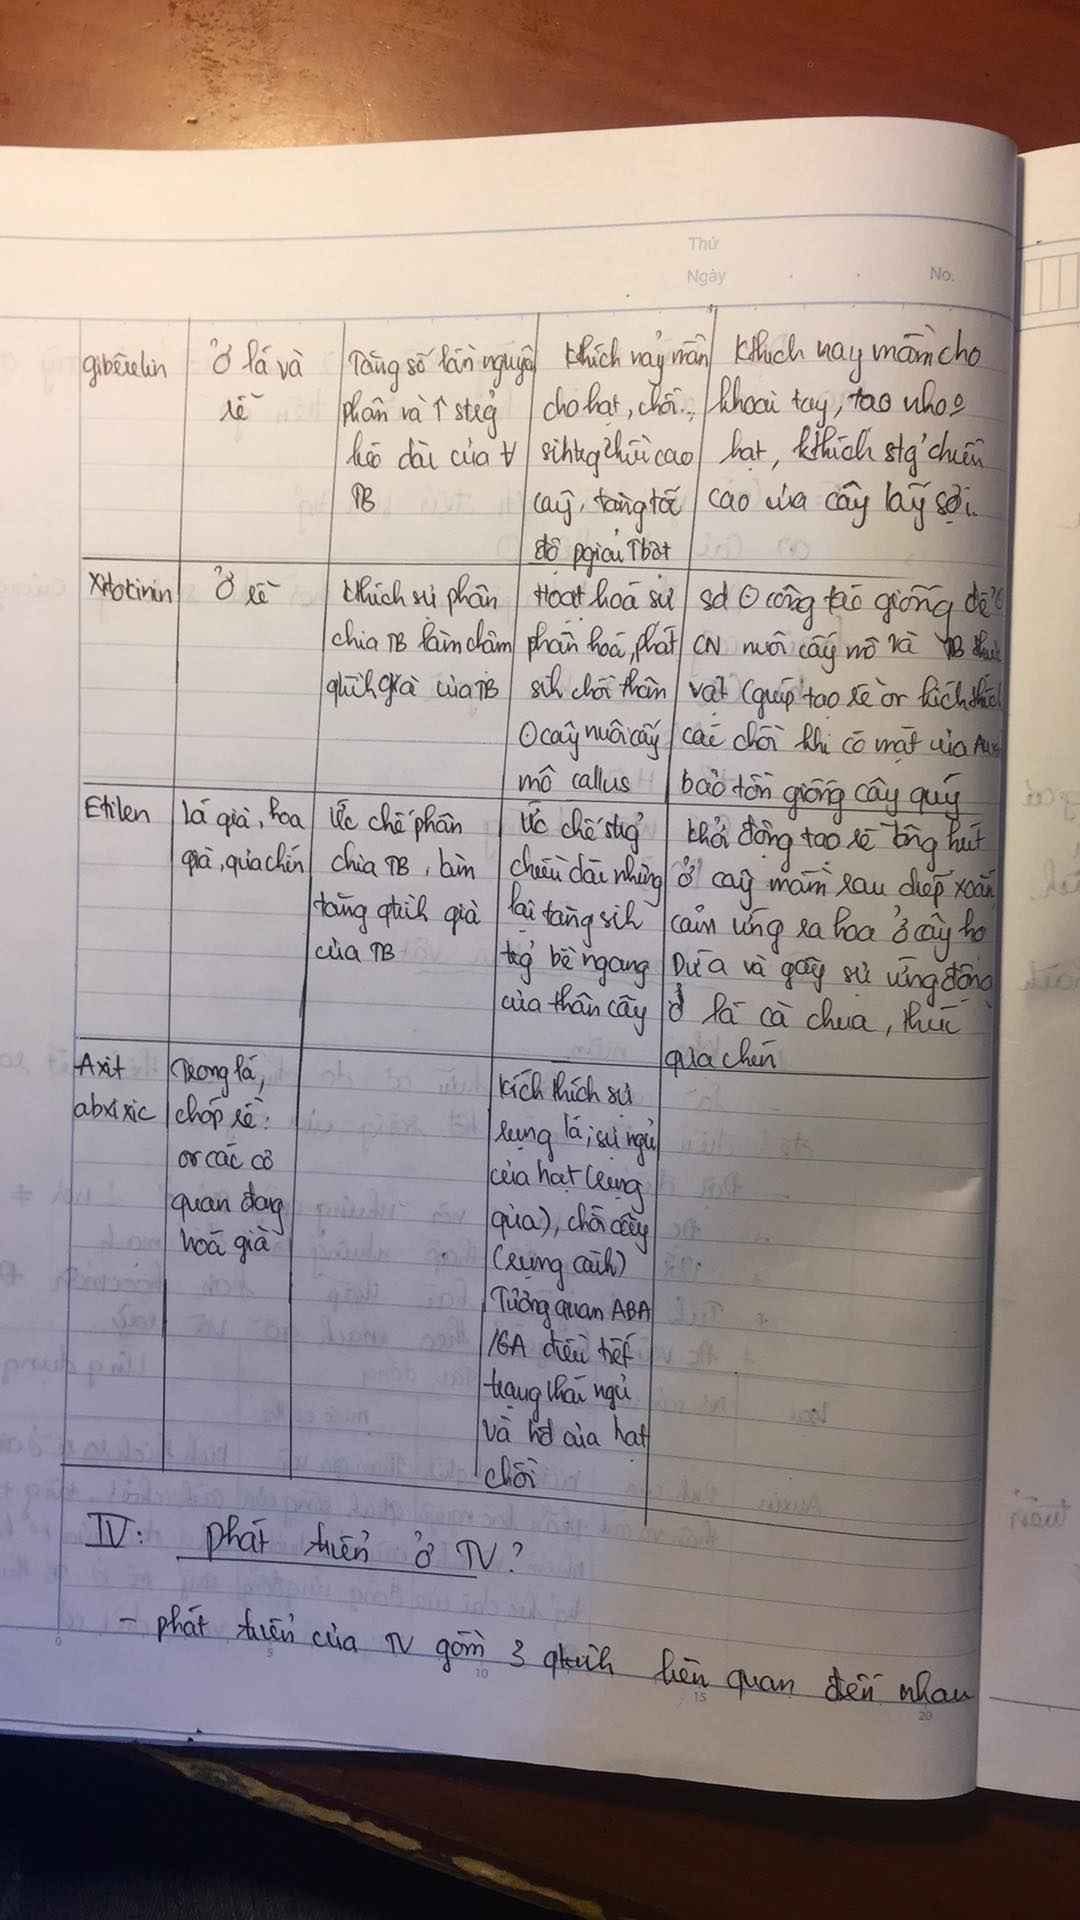 Thứ
Ngày
No.
Gibêrelin
Ở lá và
rễ
Tăng số lần nguyên
phân và ↑ strg
kéo dài của ∀
TB
kthích nảy mần
cho hạt, chồi..
sinhtrg chiều cao
cây, tăng tốc
độ pgiải Tbột
kthich nay mầm cho
khoai tây, tạo nho o
hạt, kthích stg' chiều
cao của cây lấy sợi.
Xitokinin
Ở rễ
kthích sự phân
chia TB làm chậm
qtrình già của TB
Hoạt hoá sự
phân hoá, phát
sinh chồi thân
⊙ cây nuôi cấy
mô callus
sd ⊙ công tác giống để
CN nuôi cấy mô và TB thực
vật (giúp tạo rễ or kích thích
các chồi khi có mặt của Au
bảo tồn giống cây quý
Etilen
lá già, hoa
già, quả chín
Ức chế phân
chia TB, làm
tăng qtrih già
của TB
Ức chế strg
chiều dài nhưng
lại tăng sih
trg bề ngang
của thân cây
khởi động tạo rễ lông hút
ở cây mầm rau diếp xoăn
cảm ứng ra hoa ở cây họ
Dứa và gây sự ứng động
ở lá cà chua, thúc
quả chín
Axit
abxixic
Trong lá,
chóp rễ:
or các cơ
quan đang
hoá già
kích thích sự
rụng lá, sự ngủ
của hạt (rụng
quả), chồi cây
(rụng cành)
Tương quan ABA
/GA điều tiết
trạng thái ngủ
và hđ của hạt
chồi
IV: phát triển ở TV?
- phát triển của TV gồm 3 qtrih liên quan đến nhau
0
5
10
15
20